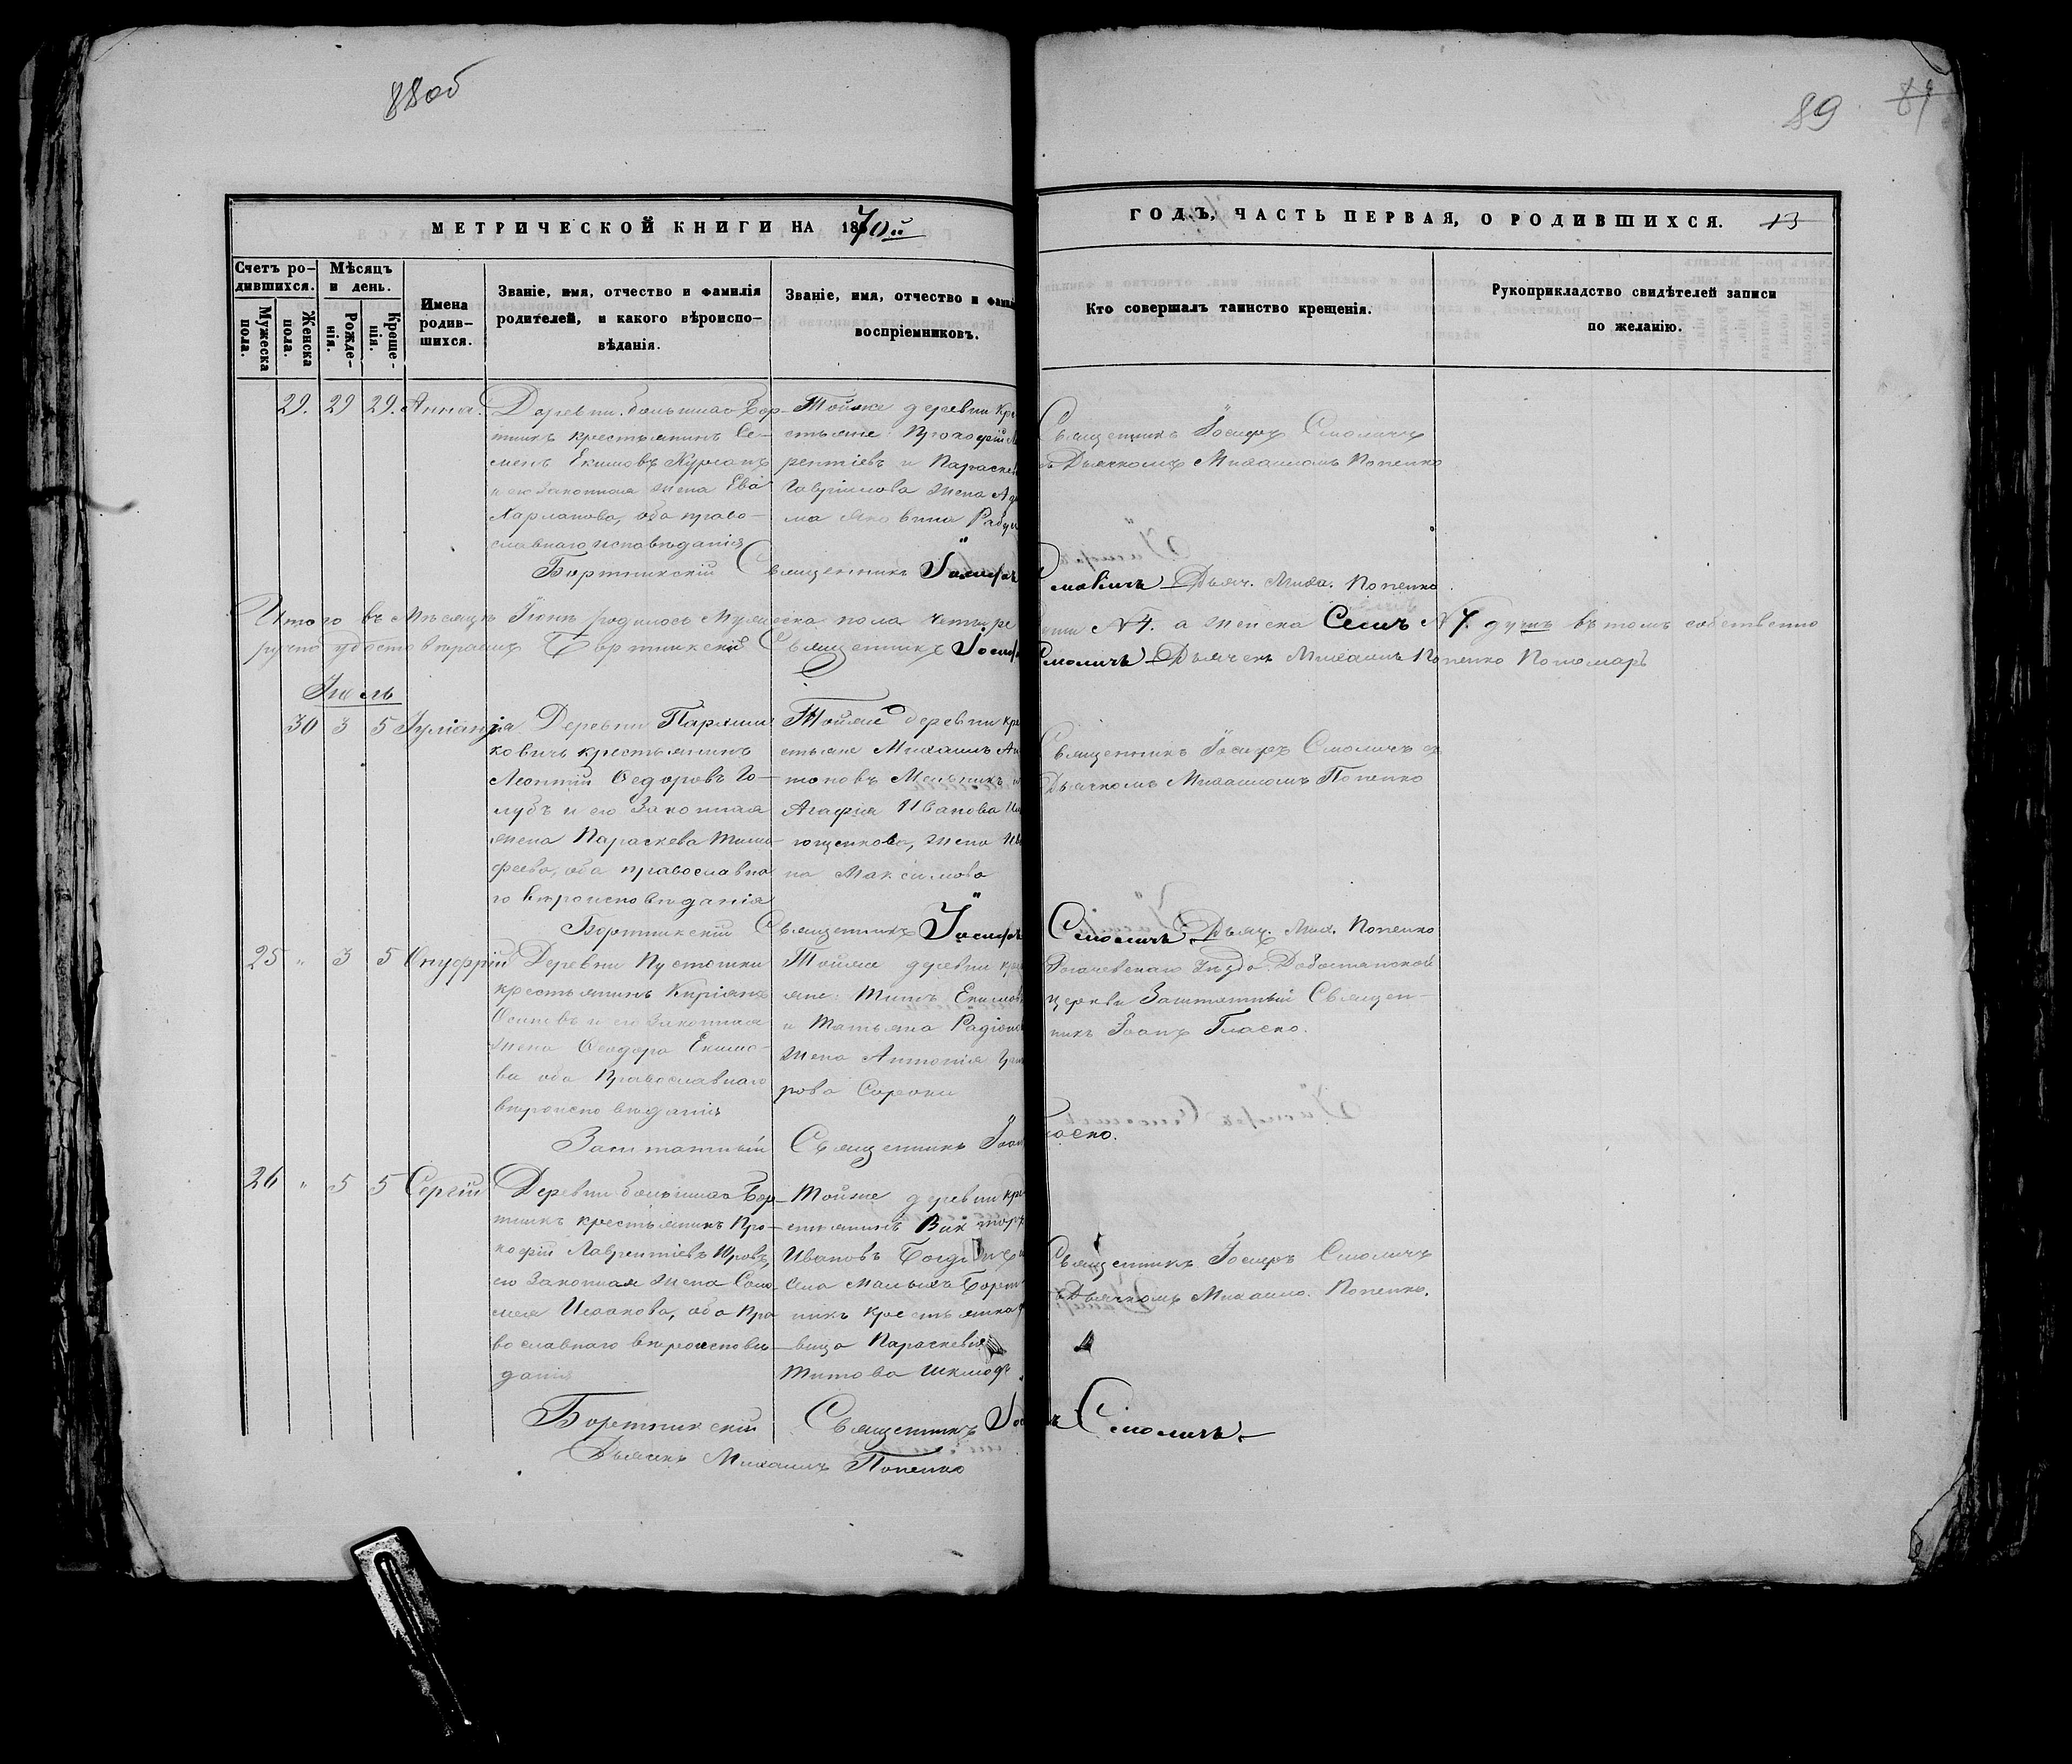 88об
89 89
МЕТРИЧЕСКОЙ КНИГИ НА 1870й
ГОДЪ, ЧАСТЬ ПЕРВАЯ, О РОДИВШИХСЯ. 13
Счетъ ро-
дившихся.
Мужеска
пола.
Женска
пола.
Мѣсяцъ
и день.
Рожде-
нія.
Креще-
нія.
Имена
родив-
шихся.
Званіе, имя, отчество и фамилія
родителей, и какого вѣроиспо-
вѣданія.
Званіе, имя, отчество и фамилія
воспріемниковъ.
Кто совершалъ таинство крещенія.
Рукоприкладство свидѣтелей записи
по желанію.
29. 29 29. Анна.
Деревни большихъ Бор-
тникъ крестьянинъ Се-
менъ Екимовъ Курганъ
и его законная жена Ева
Харланова, оба право-
славнаго исповѣданія
Тойже деревни Кре
стьяне: Прокофій Ла
рентіевъ и Параскев
Гавріилова жена Ада
ма Яковина
Священникъ Іосифъ Смоличъ
съ Дьячкомъ Михаиломъ Попенко
Бортникскій Священникъ Іосифъ Смоличъ Дьяч. Миха. Попенко
Итого въ Мѣсяцѣ Іюнѣ родилось Мужеска пола четыре N 4. а женска Семь N 7. душъ въ томъ собственно
ручно удостовѣряемъ Бортникскій Священникъ Іосифъ Смоличъ Дьячекъ Михаилъ Попенко Пономарь
Іюль
30 3 5 Іуліанія
Деревни Пархим
ковичь крестьянинъ
Леонтій Ѳедоровъ Го-
лубъ и его законная
жена Параскева Тимо-
феева, оба православна
го вѣроисповѣданія
Тойже деревни кре
стьяне Михаилъ Ан
тоновъ Мельникъ и
Агафія Иванова
ющенкова, жена Ив
на Максимова
Священникъ Іосифъ Смоличъ съ
Дьячкомъ Михаиломъ Попенко
Бортникскій Священникъ Іосифъ Смоличъ. Дьяч. Мих. Попенко
25 " 3 5 Онуфрій
Деревни Пустошки
крестьянинъ Киріанъ
Осиповъ и его законная
жена Ѳеодора Екимо-
ва оба Православнаго
вѣроисповѣданія
Тойже деревни кре
яне: Титъ Екимовъ
и Татьяна Радіонов
жена Антонія
рова Сороки
Рогачевскаго Уѣзда
церкви Заштатный Священ-
никъ Іоаннъ Гласко.
Заштатный Священникъ Іоан Гласко.
26 " 5 5 Сергій
Деревни большихъ Бор-
тникъ крестьянинъ Про-
кофій Лаврентіевъ Юровъ,
его законная жена Соло-
мея Исаакова, оба Пра
вославнаго вѣроисповѣ-
данія
Тойже деревни кре
стьянинъ Викторъ
Ивановъ
Села Малыхъ Борт
никъ крестьянка
вица Параскевія
Титова
Священникъ Іосифъ Смоличъ
съ Дьячкомъ Михаило. Попенко.
Бортникскій Священникъ Іосифъ Смоличъ.
Дьячекъ Михаилъ Попенко